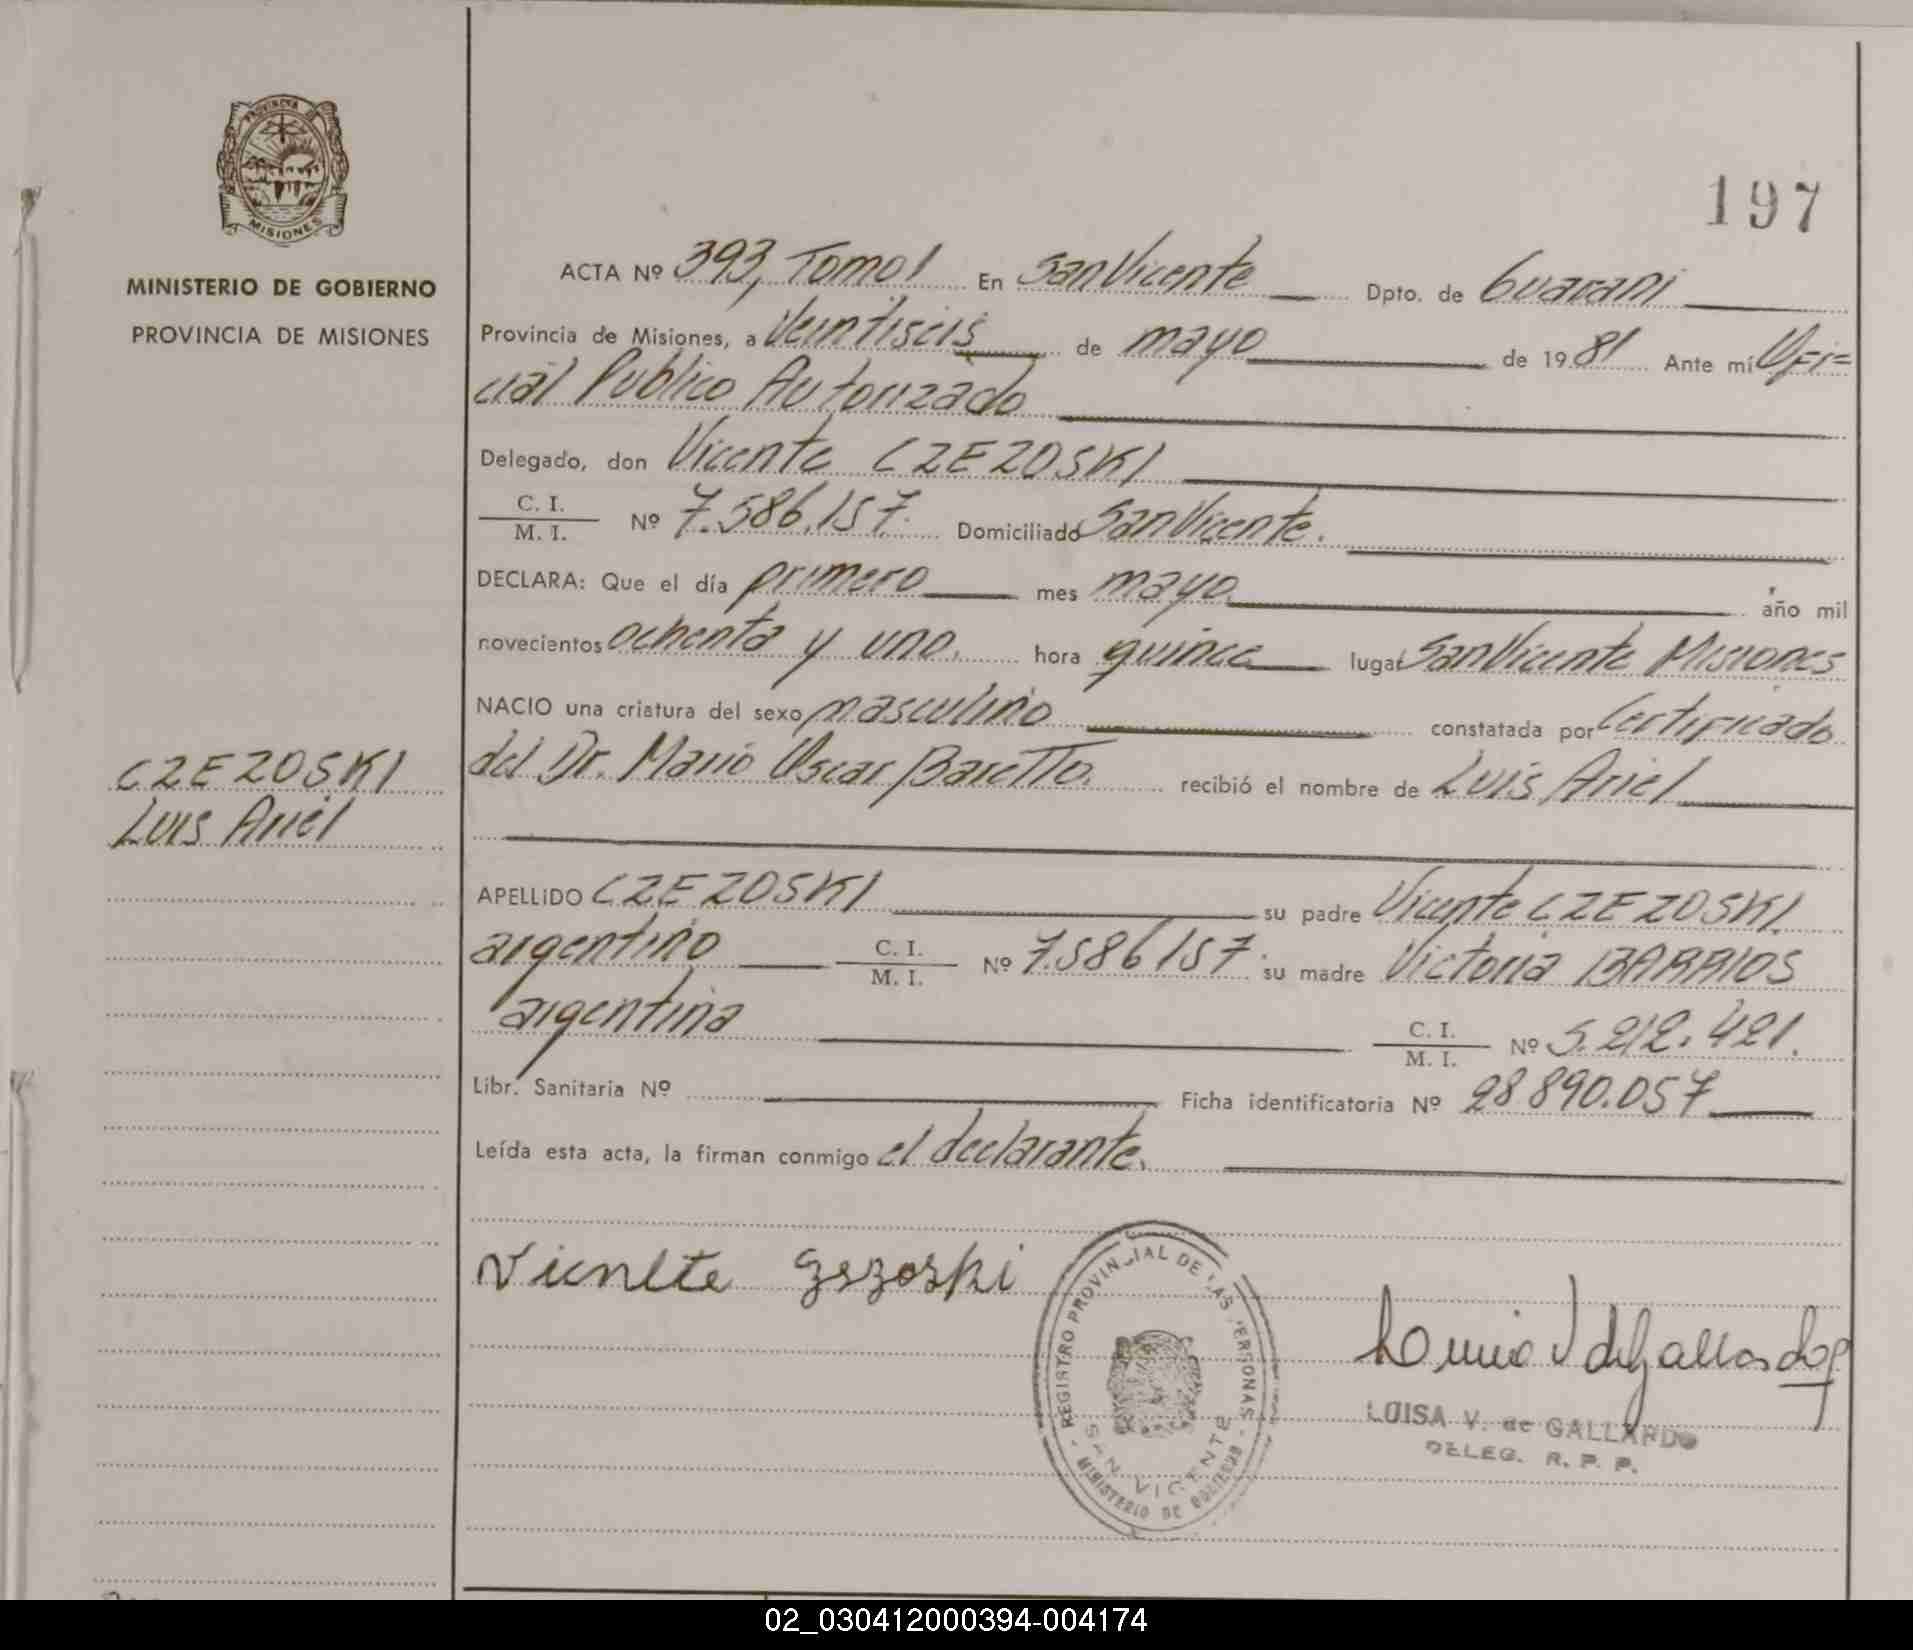 PROVINCIA DE
MISIONES
MINISTERIO DE GOBIERNO
PROVINCIA DE MISIONES
CZEZOSKI
Luis Ariel
197
ACTA Nº 393, Tomo I En San Vicente Dpto. de Guarani
Provincia de Misiones, a Veintiseis de mayo de 1981 Ante mí Ofi=
cial Publico Autorizado
Delegado, don Vicente CZEZOSKI
C. I.
M. I. Nº 7.586.157. Domiciliado San Vicente.
DECLARA: Que el día primero mes mayo año mil
novecientos ochenta y uno. hora quince lugar San Vicente Misiones
NACIO una criatura del sexo masculino constatada por Certificado
del Dr. Mario Oscar Baretto. recibió el nombre de Luis Ariel
APELLIDO CZEZOSKI su padre Vicente CZEZOSKI.
argentino C. I. M. I. Nº 7.586157. su madre Victoria BARRIOS
argentina C. I. M. I. Nº 5.212.421.
Libr. Sanitaria Nº Ficha identificatoria Nº 28890.057
Leída esta acta, la firman conmigo el declarante.
REGISTRO PROVINCIAL DE LAS PERSONAS
SAN VICENTE
MINISTERIO DE GOBIERNO
LUISA V. de GALLARDO
DELEG. R. P. P.
02_030412000394-004174